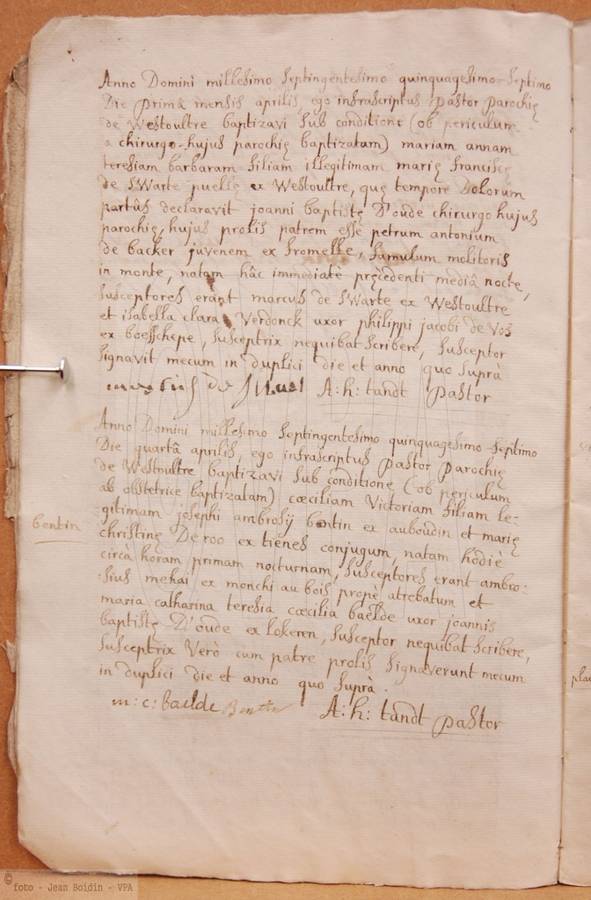 Anno Domini millesimo septingentesimo quinquagesimo septimo
Die prima mensis aprilis, ego infrascriptus pastor parochię
de Westoultre baptizavi sub conditione (ob periculum
a chirurgo hujus parochię baptizatam) mariam annam
teresiam barbaram filiam illegitimam marię franciscę
de SWarte puellę ex Westoultre, quę tempore Dolorum
partûs declaravit joanni baptistę D'oude chirurgo hujus
parochię, hujus prolis patrem esse petrum antonium
de backer juvenem ex fromelle, famulum molitoris
in monte, natam hâc immediatè pręcedenti mediâ nocte,
susceptores erant marcus de SWarte ex Westoultre
et isabella clara Verdonck uxor philippi jacobi de Vos
ex boesschepe, susceptrix nequibat scribere, susceptor
signavit mecum in duplici die et anno quo suprà
A: h: tandt pastor
Anno Domini millesimo septingentesimo quinquagesimo septimo
Die quartâ aprilis, ego infrascriptus pastor parochię
de Westoultre baptizavi sub conditione (ob periculum
ab obstetrice baptizatam) cæciliam Victoriam filiam le-
gitimam josephi ambrosij bentin ex auboudin et marię
bentin
christinę De roo ex tienes conjugum, natam hodiè
circà horam primam nocturnam, susceptores erant ambro-
sius mehai ex monchi au bois propè atrebatum et
maria catharina teresia cæcilia baelde uxor joannis
baptistę D'oude ex lokeren, susceptor nequibat scribere,
susceptrix Verò cum patre prolis signaverunt mecum
in duplici die et anno quo suprà.
m: c: baelde Bentin A: h: tandt pastor
© foto - Jean Boidin - VPA